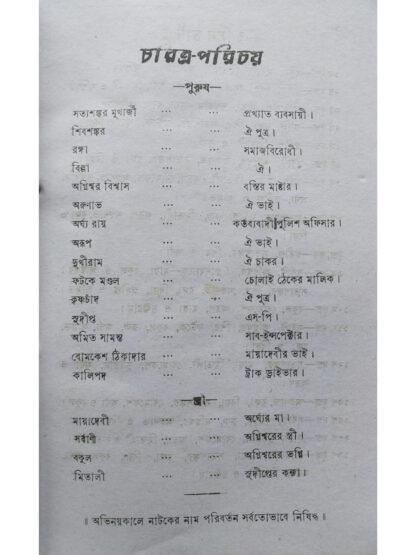 চরিত্র-পরিচয়
—পুরুষ—
সত্যশঙ্কর মুখার্জী ... ... প্রখ্যাত ব্যবসায়ী।
শিবশঙ্কর ... ... ঐ পুত্র।
রঙ্গা ... ... সমাজবিরোধী।
বিল্লা ... ... ঐ।
অগ্নিশ্বর বিশ্বাস ... ... বস্তির মাষ্টার।
অরুণাভ ... ... ঐ ভাই।
অর্ঘ্য রায় ... ... কর্তব্যবাদী পুলিশ অফিসার।
অরূপ ... ... ঐ ভাই।
দুখীরাম ... ... ঐ চাকর।
ফটকে মণ্ডল ... ... চোলাই ঠেকের মালিক।
কৃষ্ণচাঁদ ... ... ঐ পুত্র।
সুদীপ্ত ... ... এস-পি।
অমিত সামন্ত ... ... সাব-ইন্সপেক্টার।
বোমকেশ ঠিকাদার ... ... মায়াদেবীর ভাই।
কালিপদ ... ... ট্রাক ড্রাইভার।
—স্ত্রী—
মায়াদেবী ... ... অর্ঘ্যের মা।
সর্বাণী ... ... অগ্নিশ্বরের স্ত্রী।
বকুল ... ... অগ্নিশ্বরের ভগ্নি।
মিতালী ... ... সুদীপ্তের কন্যা।
॥ অভিনয়কালে নাটকের নাম পরিবর্তন সর্বতোভাবে নিষিদ্ধ ॥